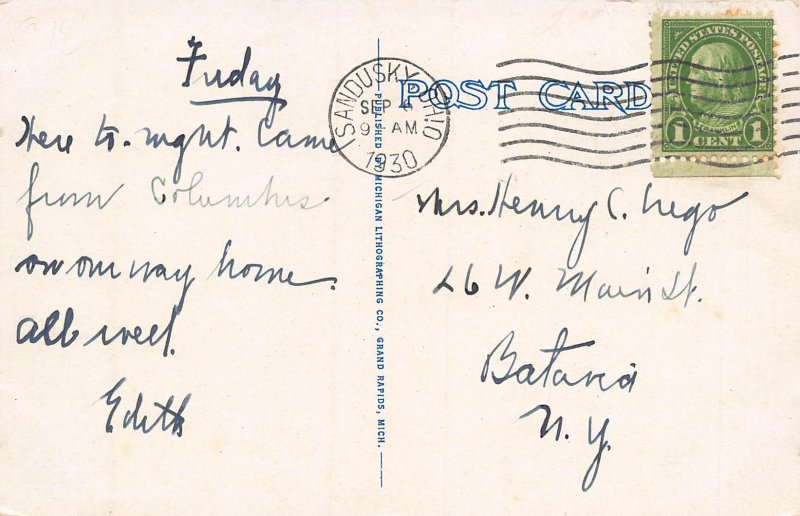 Friday
Here to-night. Came
from Columbus
on our way home.
all well.
Edith
SANDUSKY, OHIO
SEP 6
9 AM
1930
POST CARD
UNITED STATES POSTAGE
1 CENT 1
PUBLISHED BY MICHIGAN LITHOGRAPHING CO., GRAND RAPIDS, MICH.
Mrs. Henry C.
26 W. Main St.
Batavia
N.Y.